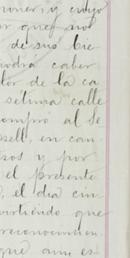 y cuyo
de sus bie
podrá caber
tor de la ca
sétima calle
compró al Se
sell, en can
sos y por
el presente
, el día cin
virtiendo que
reconocimien
que am es